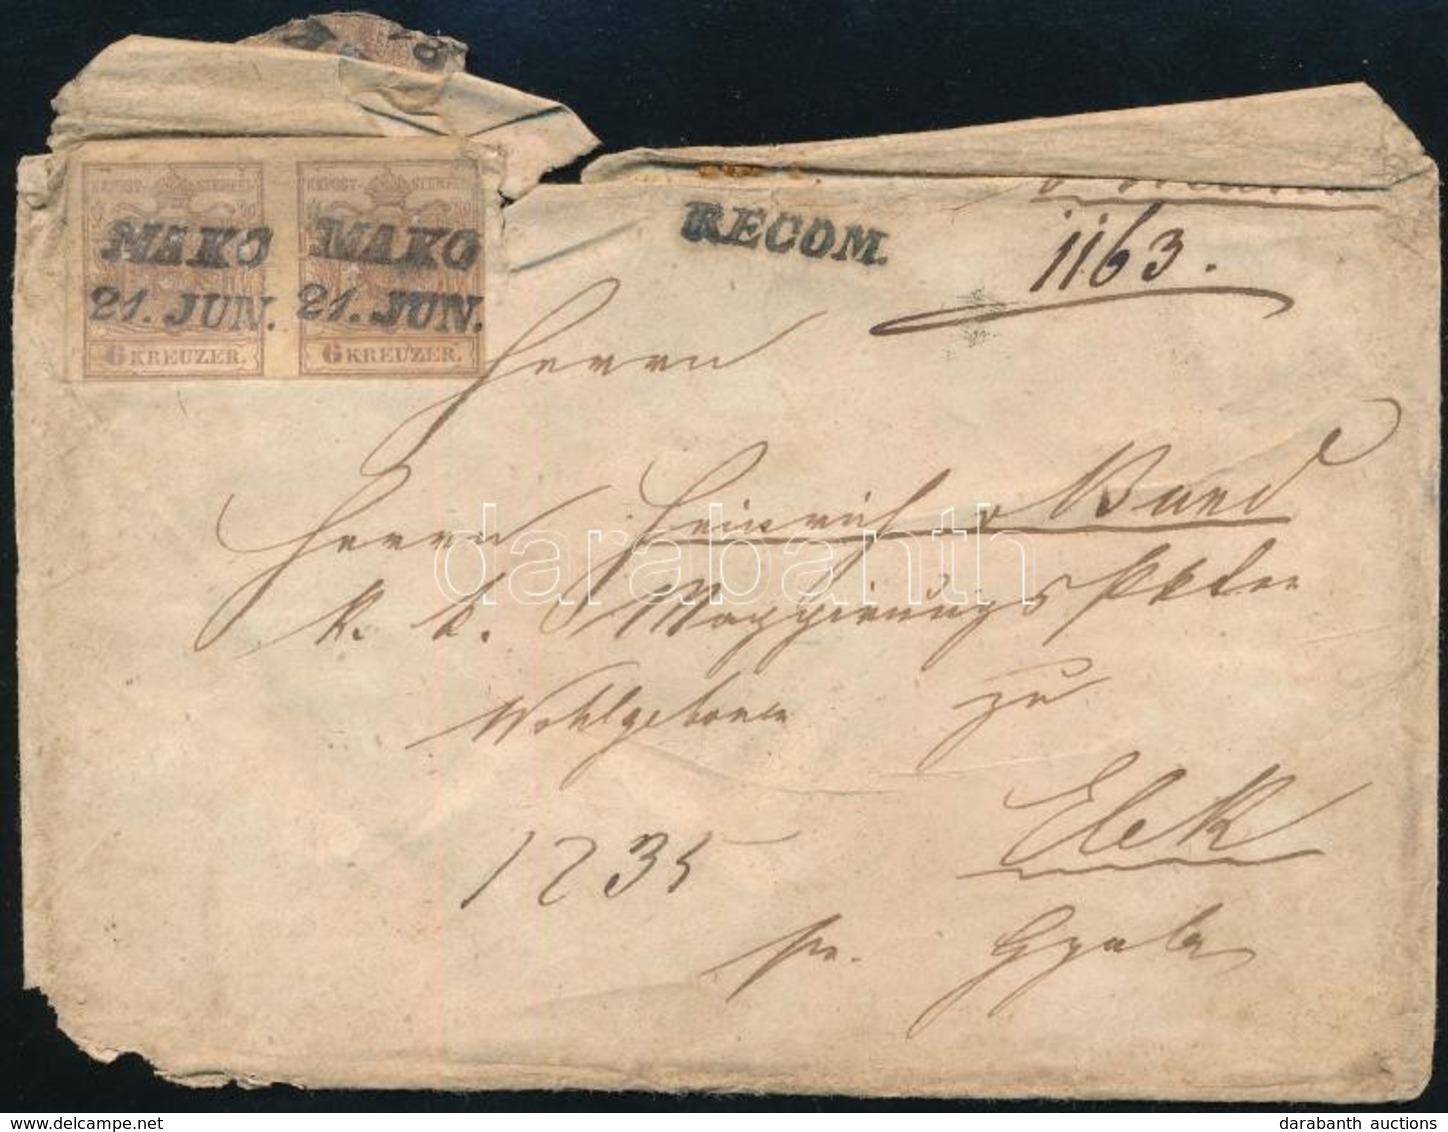 KKPOST-STEMPEL KKPOST-STEMPEL
MAKO MAKO
21. JUN. 21. JUN.
6 KREUZER. 6 KREUZER.
RECOM.
1163.
Herrn
Herrn Heinrich v Bund
k. k. Mappierungs
Wohlgeboren zu
Elek
1235
pr. Gyula
darabanth
delcampe.net
darabanth auctions